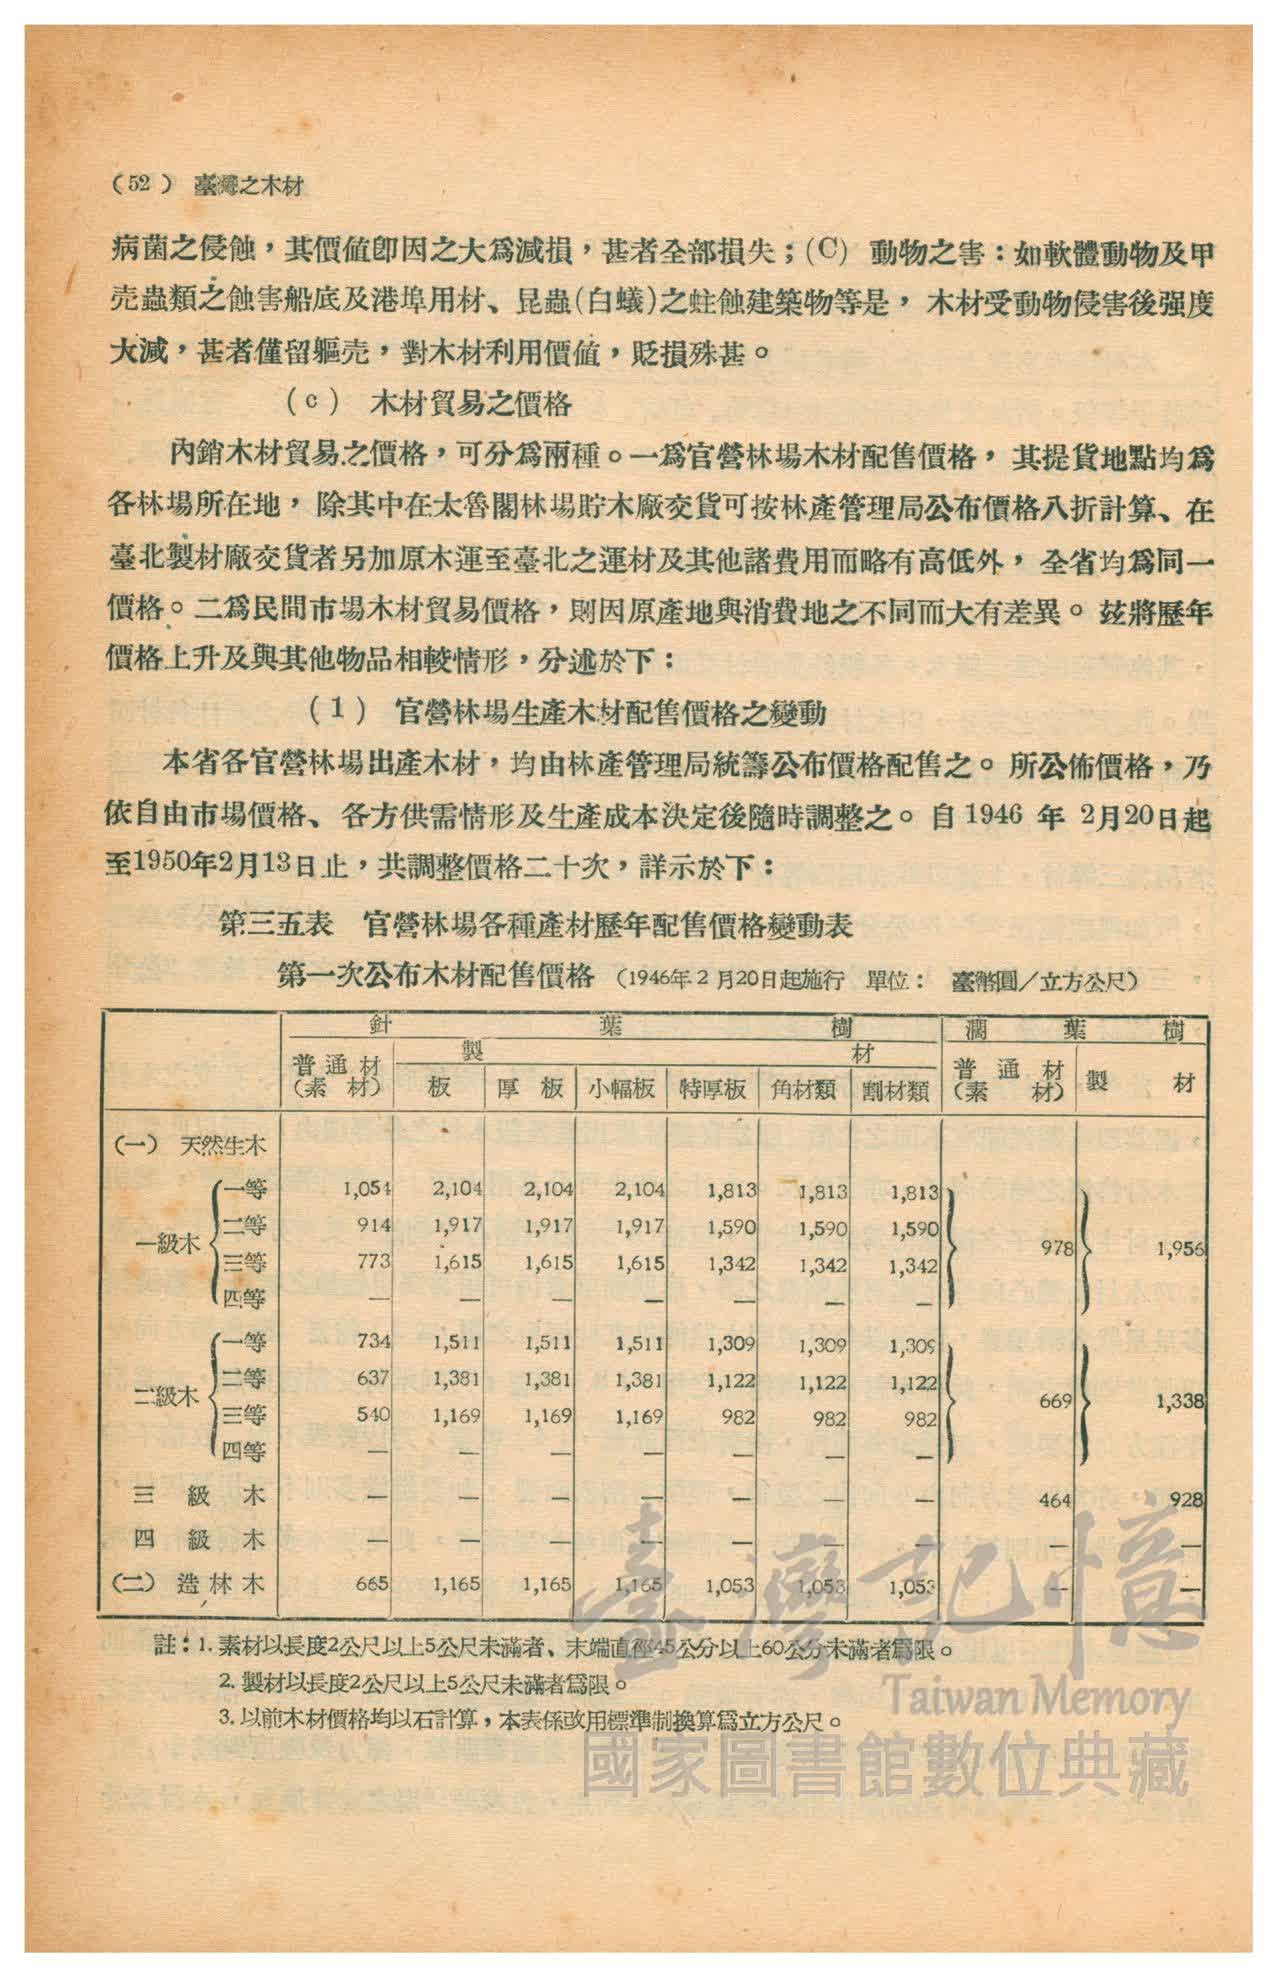 (52) 臺灣之木材
病菌之侵蝕，其價値卽因之大爲減損，甚者全部損失；(C) 動物之害：如軟體動物及甲
壳蟲類之蝕害船底及港埠用材、昆蟲(白蟻)之蛀蝕建築物等是， 木材受動物侵害後强度
大減，甚者僅留軀壳，對木材利用價値，貶損殊甚。
(c) 木材貿易之價格
內銷木材貿易之價格，可分爲兩種。一爲官營林場木材配售價格， 其提貨地點均爲
各林場所在地， 除其中在太魯閣林場貯木廠交貨可按林產管理局公布價格八折計算、在
臺北製材廠交貨者另加原木運至臺北之運材及其他諸費用而略有高低外， 全省均爲同一
價格。二爲民間市場木材貿易價格，則因原產地與消費地之不同而大有差異。 茲將歷年
價格上升及與其他物品相較情形，分述於下：
(1) 官營林場生產木材配售價格之變動
本省各官營林場出產木材，均由林產管理局統籌公布價格配售之。所公佈價格，乃
依自由市場價格、各方供需情形及生產成本決定後隨時調整之。自1946 年 2月20日起
至1950年2月13日止，共調整價格二十次，詳示於下：
第三五表 官營林場各種產材歷年配售價格變動表
第一次公布木材配售價格 (1946年2月20日起施行 單位： 臺幣圓／立方公尺)
針 葉 樹 濶 葉 樹
普通材(素材) 製 材 普通材(素材) 製材
板 厚板 小幅板 特厚板 角材類 割材類
(一) 天然生木
一級木 一等 1,054 2,104 2,104 2,104 1,813 1,813 1,813
二等 914 1,917 1,917 1,917 1,590 1,590 1,590 978 1,956
三等 773 1,615 1,615 1,615 1,342 1,342 1,342
四等 — — — — — — —
二級木 一等 734 1,511 1,511 1,511 1,309 1,309 1,309
二等 637 1,381 1,381 1,381 1,122 1,122 1,122 669 1,338
三等 540 1,169 1,169 1,169 982 982 982
四等 — — — — — — —
三級木 — — — — — — — 464 928
四級木 — — — — — — — — —
(二) 造林木 665 1,165 1,165 1,165 1,053 1,053 1,053 — —
註：1. 素材以長度2公尺以上5公尺未滿者、末端直徑45公分以上60公分未滿者爲限。
2. 製材以長度2公尺以上5公尺未滿者爲限。
3. 以前木材價格均以石計算，本表係改用標準制換算爲立方公尺。
臺灣記憶
Taiwan Memory
國家圖書館數位典藏